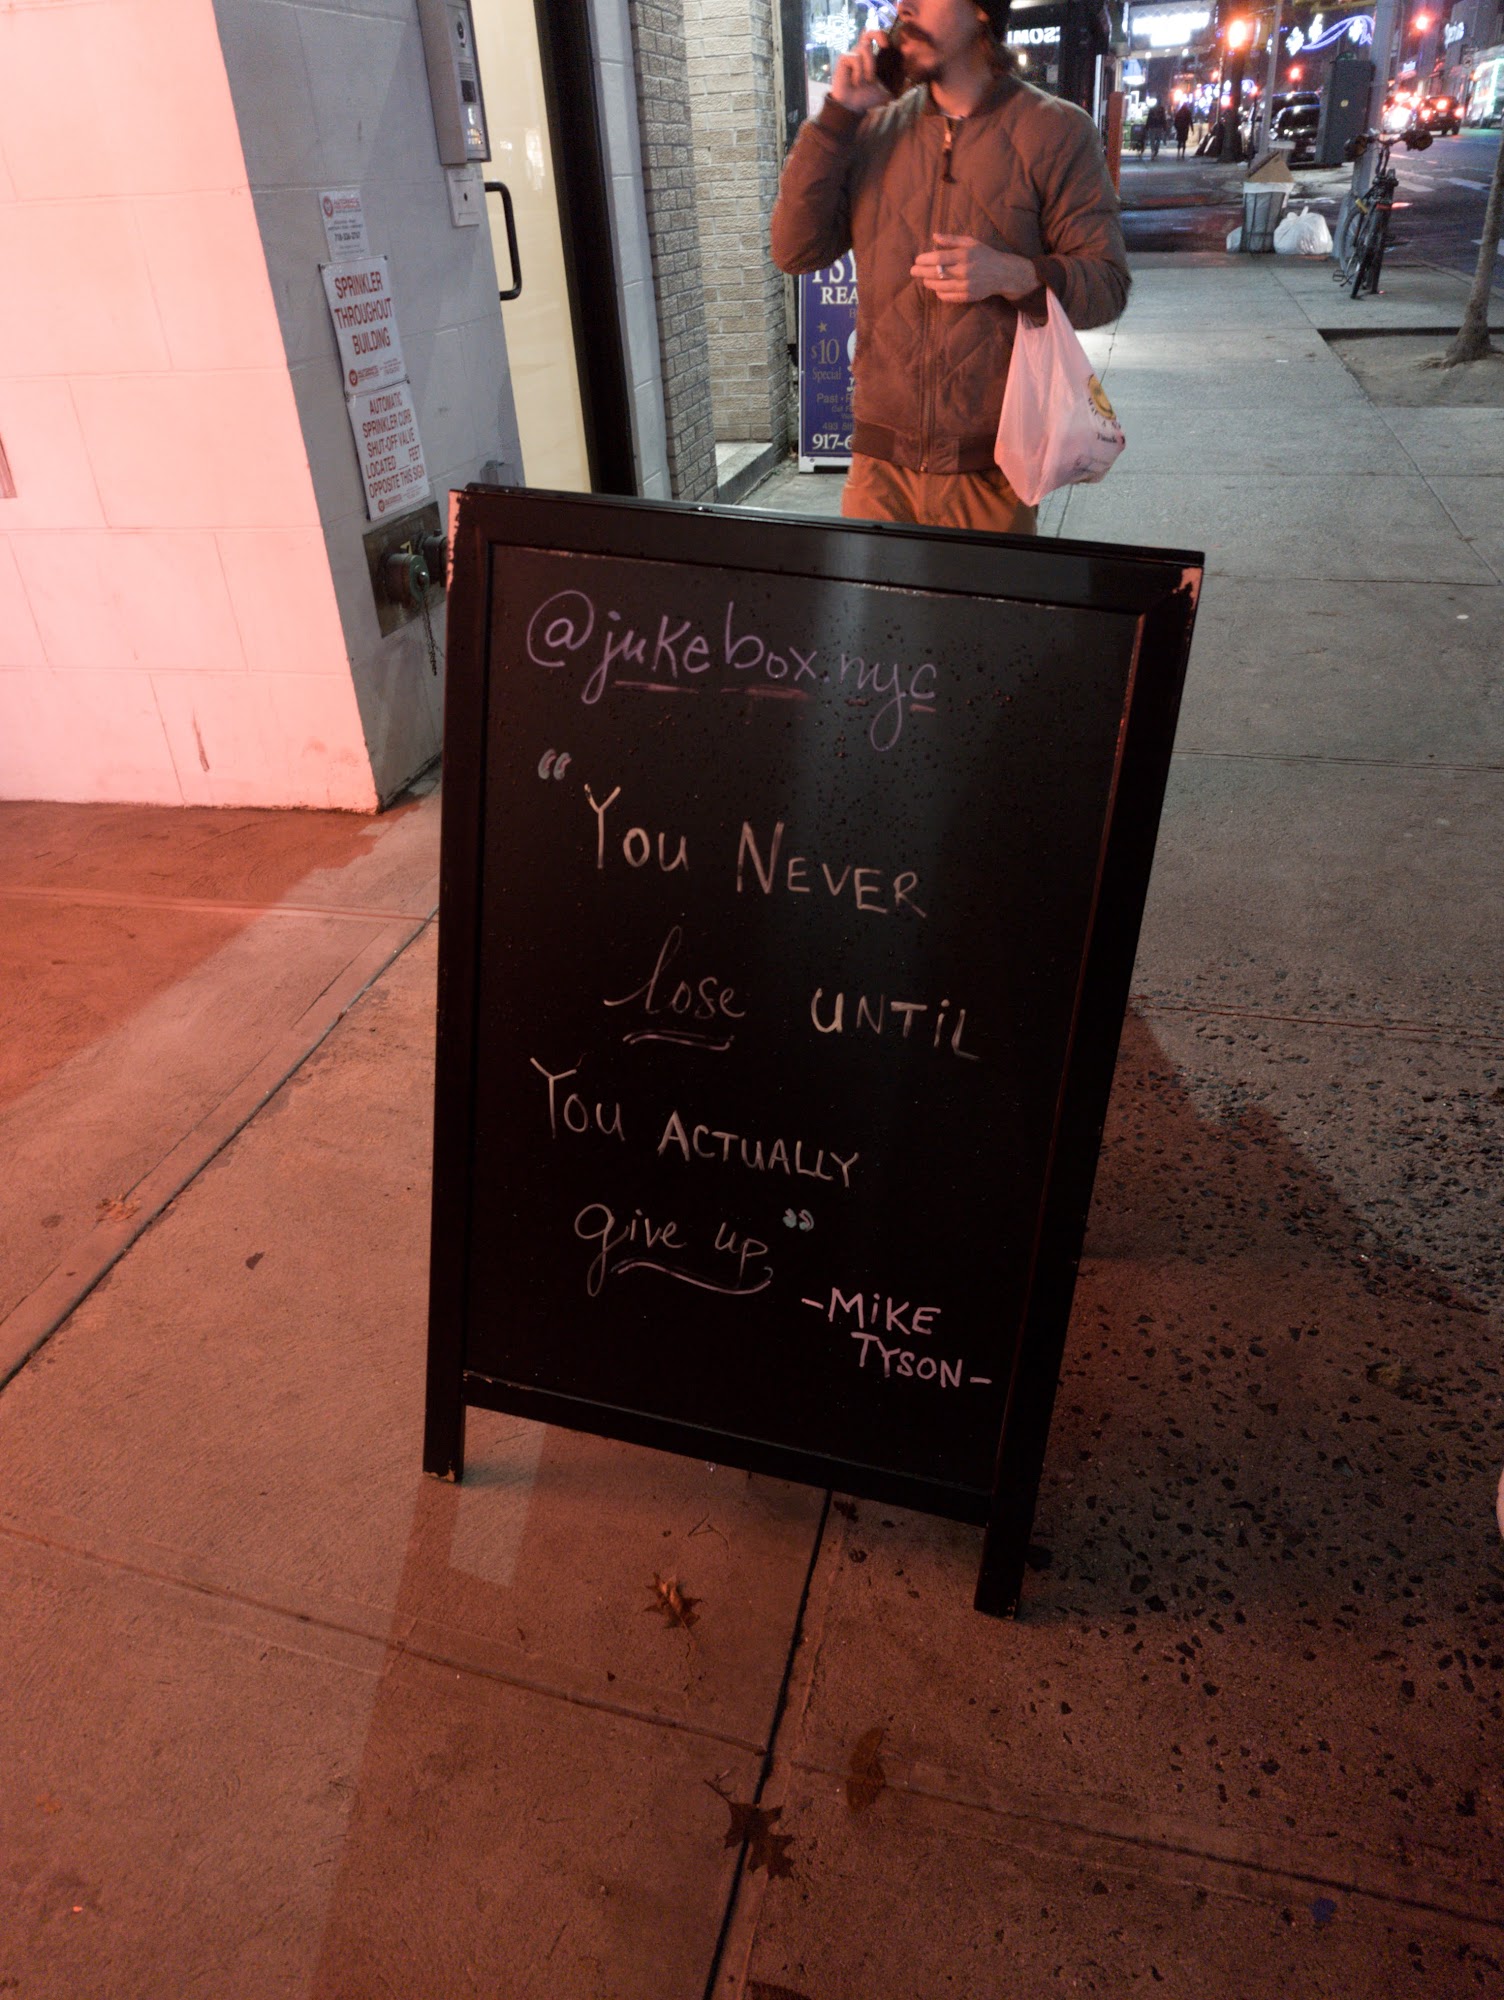 @jukebox.nyc
“You NEVER
lose UNTiL
You ACTUALLY
give up”
-MiKE
TYSON-
SPRINKLER
THROUGHOUT
BUILDING
AUTOMATIC
SPRINKLER CURB
SHUT-OFF VALVE
LOCATED FEET
OPPOSITE THIS SIGN
REA
$10
Special
Past
917-6